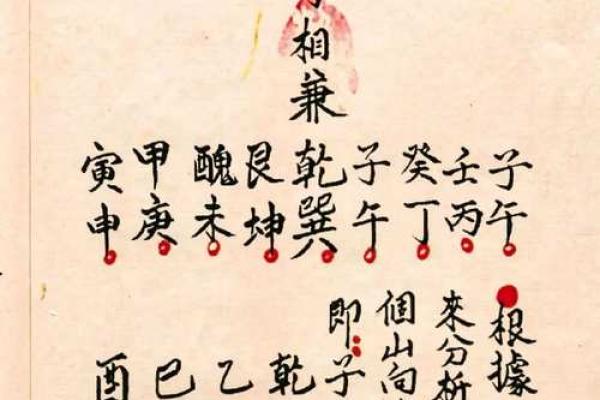 相兼
子午
壬丙
癸丁
子午
乾巽
艮坤
醜未
甲庚
寅申
根據
來分析
個山向
即：子
乾
乙
巳
酉